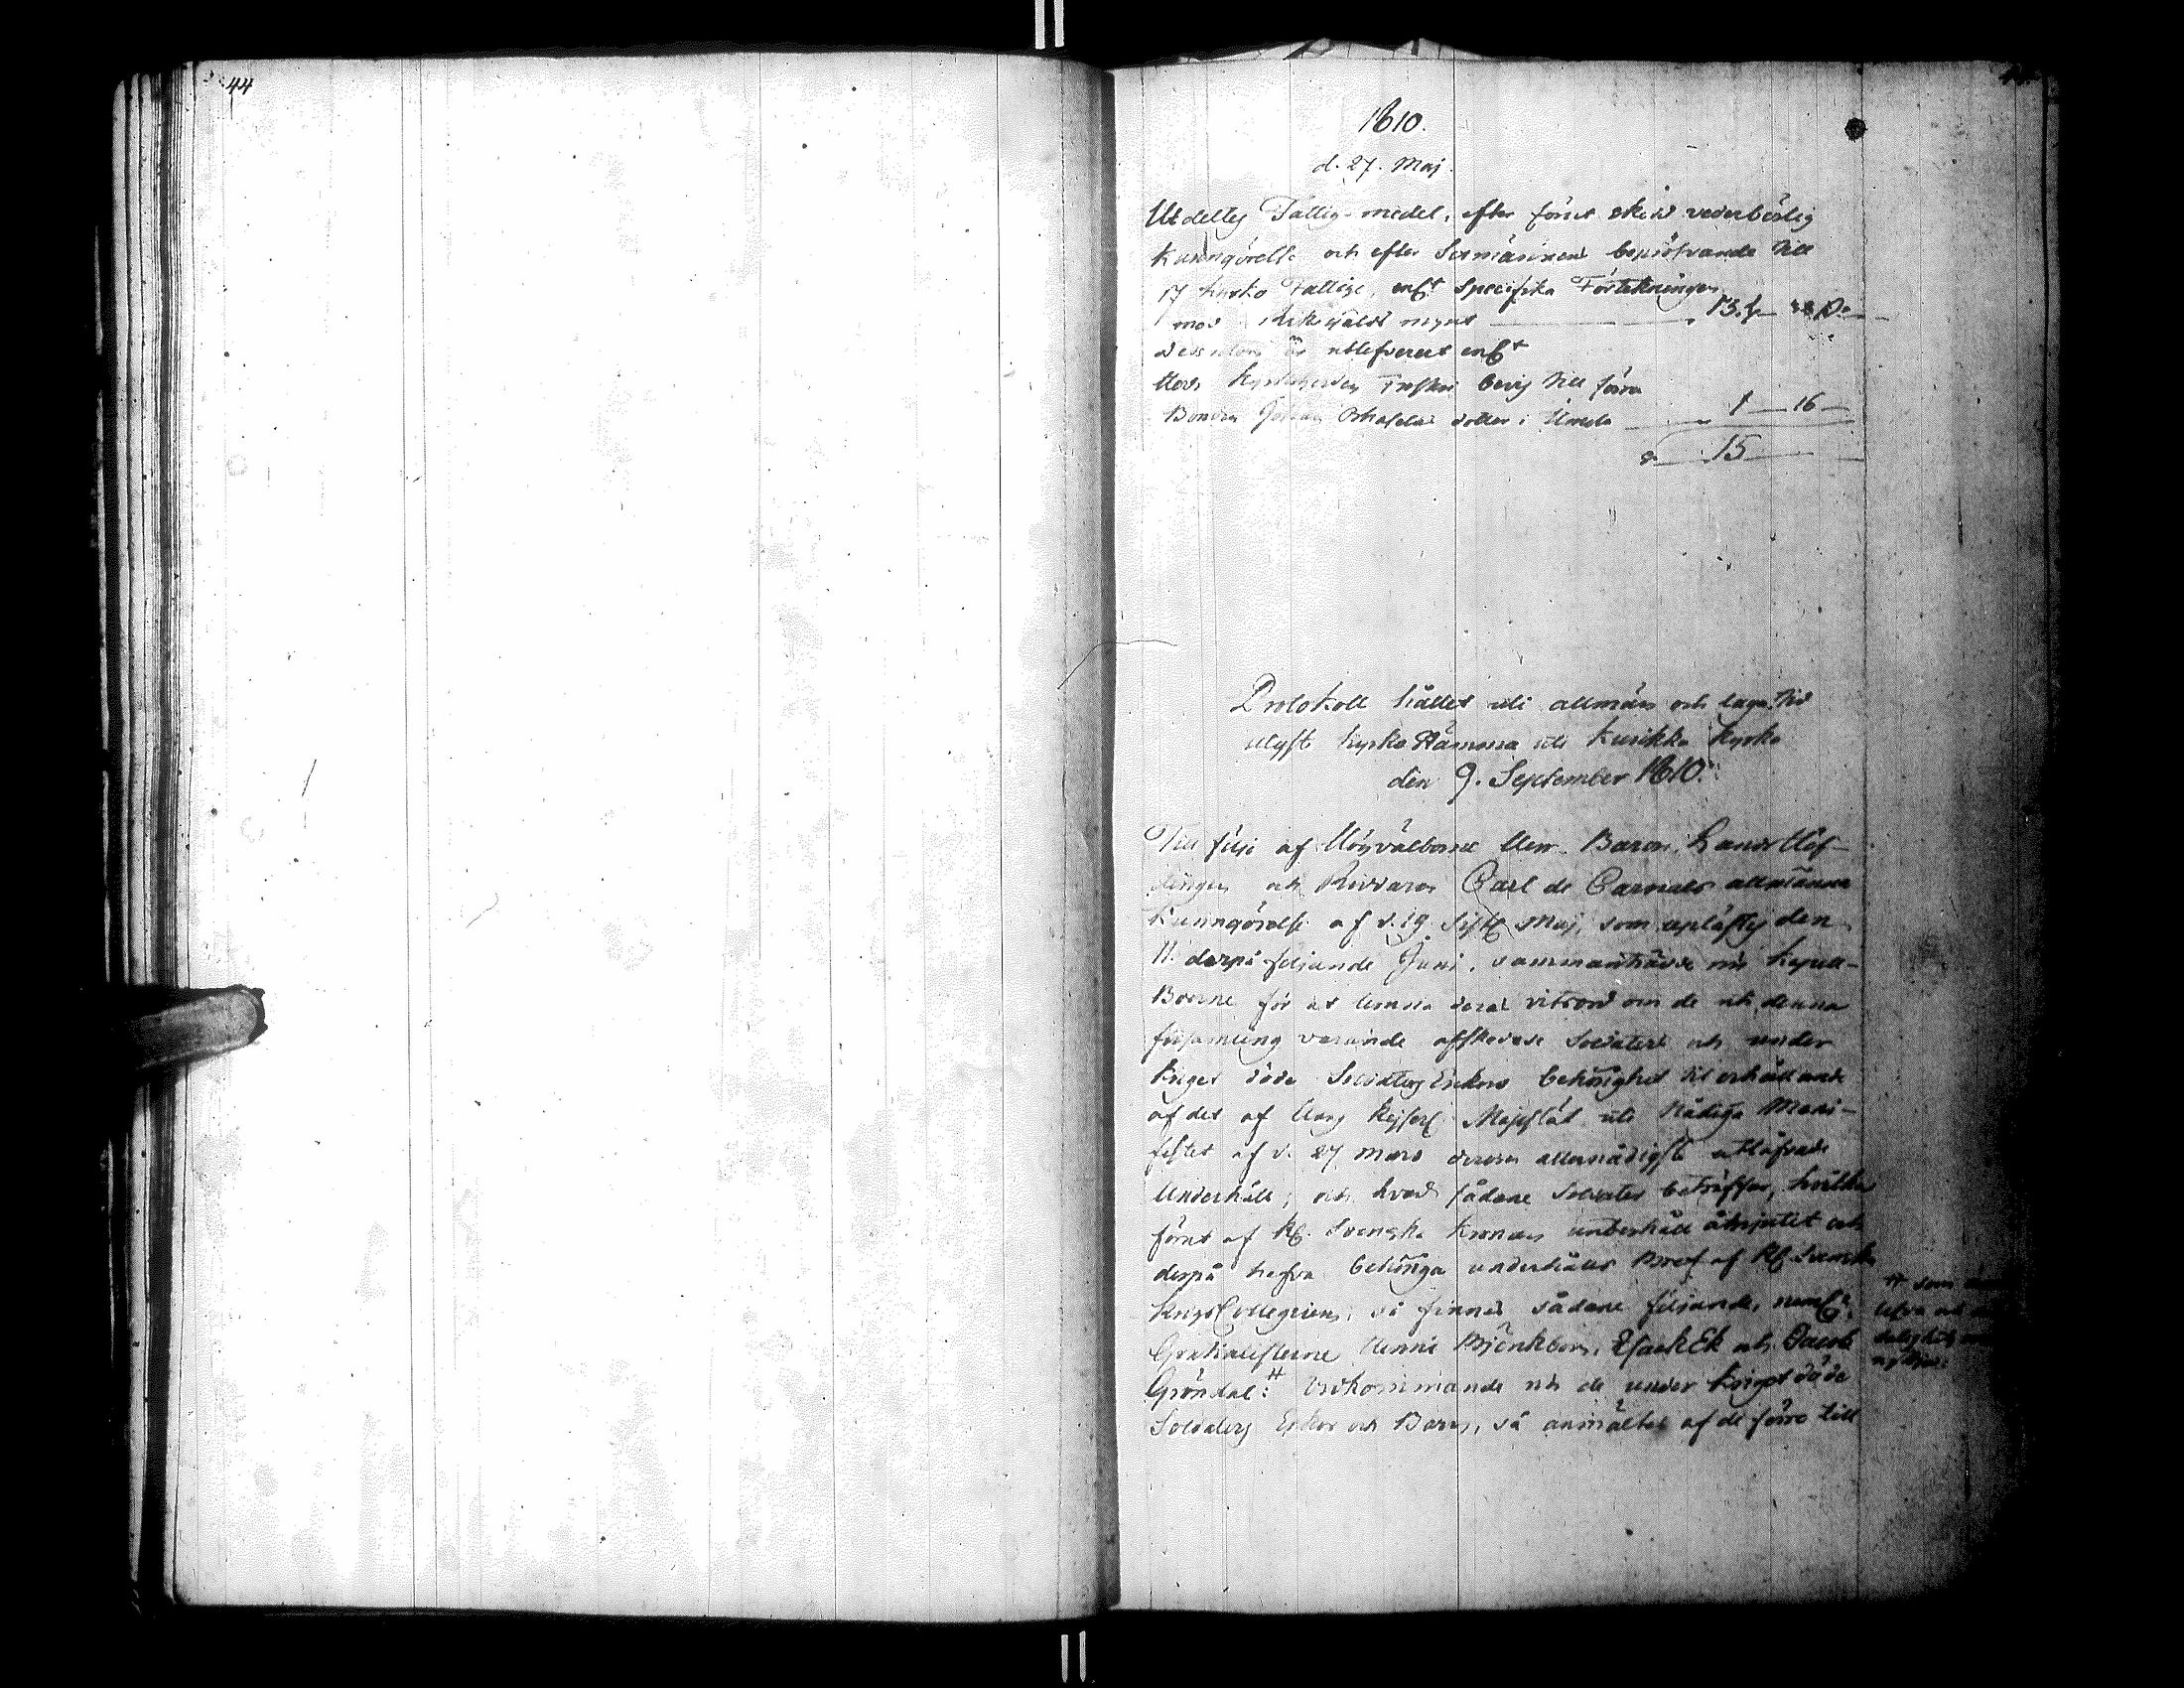 44
1810.
d. 27. Maj.
Utdeltes Fattig-medel, efter förut skedd vederbörlig
Kunngörelse och efter Sexmännens bepröfvande till
17 kyrko Fattige, enl.t specifika Förtekningen
med Riksgälds mynt 13. 32
dessutom är utlefverert enl.t
Herr Kyrkoherden bevis till förra
Bonden dotter i Umeda 1 — 16 —
15
Protokoll hållet uti allmän och laga tid
utlyst kyrko Stämma uti Kurikka kyrka
den 9. September 1810.
Till följe af Högvälborne Herr Baron, Landshöf-
dingen och Riddaren Carl de Carnals allmänna
Kunngörelse af d. 19 sistl. Maj, som uplästes den
11. derpå följande Juni, sammanträdde nu Kapell-
Boerne för at lemna deras vitsord om de uti denna
församling varande affskedade Soldaters och under
kriget döde Soldaters Enkors behörighet til erhållande
af det af Hans Kejserl. Majestät uti Nådiga Mani-
festet af d. 27 Mars dem allernådigst utlofvade
Underhåll; och hvad sådane Soldater beträffar, hvilka
förut af Kl. Svenska Kronan underhåll åtnjutit och
derpå hafva behöriga underhålls Bref af Kl. Svenska
KrigsCollegium, så finnas sådane följande, neml.n
Gratialisterne Henric Björkbom, Isack Ek och Jacob
Gröndal:# Vidkommande och de under Kriget döde
Soldaters Enkor och Barn, så anmältes af de förra till
# som
lefva